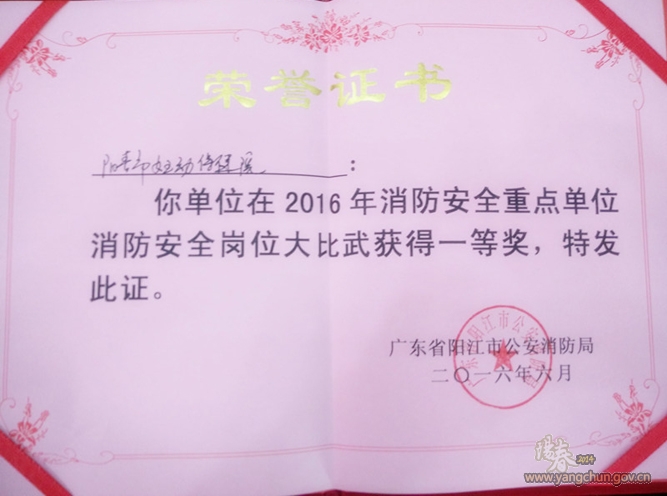 荣誉证书
阳春市妇幼保健院:
你单位在 2016 年消防安全重点单位
消防安全岗位大比武获得一等奖，特发
此证。
广东省阳江市公安消防局
二〇一六年六月
广东省阳江市公安消防局
阳春
2014
www.yangchun.gov.cn